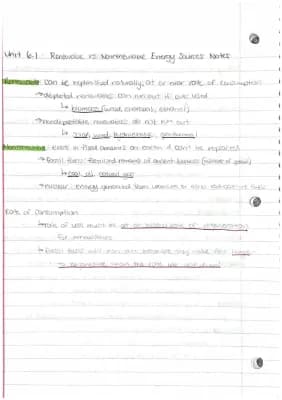 Unit 6.1: Renewable vs Nonrenewable Energy Sources Notes
Renewable: can be replenished naturally, at or near rate of consumption
→ depleted renewables: can run out if over used
↳ biomass (wood, charcoal, ethanol)
→ nondepletable renewables: do not run out
↳ solar, wind, hydroelectric, geothermal
Nonrenewable: exist in fixed amounts on earth & can't be replaced
→ fossil fuels: fossilized remains of ancient biomass
↳ coal, oil, natural gas
→ nuclear: energy generated from uranium or other radioactive fuels
Rate of Consumption
↳ rate of use must be at or below rate of
for renewables
↳ fossil fuels will run out because they take far longer
to than the rate we